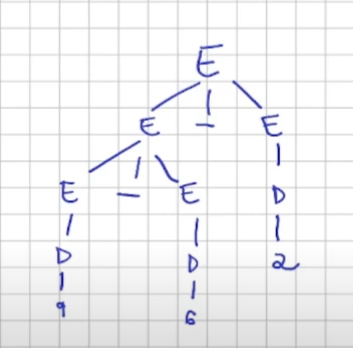 E
E - E
E - E D
D D 2
9 6